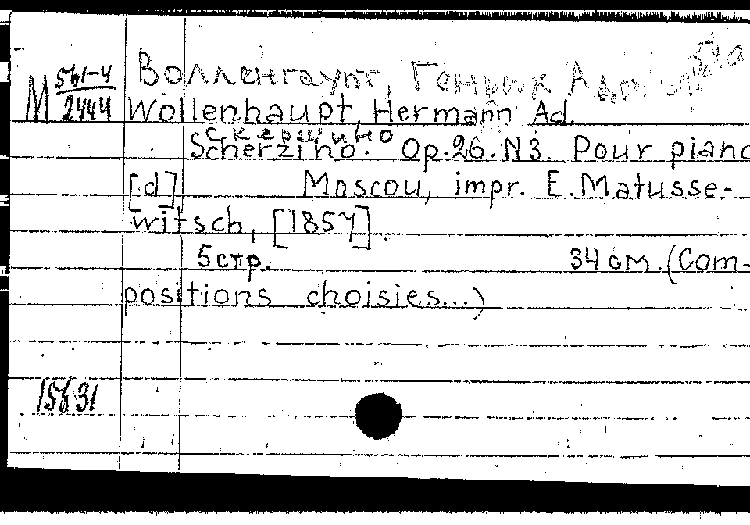 М 561-4/2444
Волленгаупт, Генрих
Wollenhaupt, Hermann Ad.
скерцино
Scherzino. Op.26. N3. Pour piano
[:d] Moscou, impr. E. Matusse-
witsch, [1857].
5 стр. 34 см. (Com-
positions choisies...)
15631